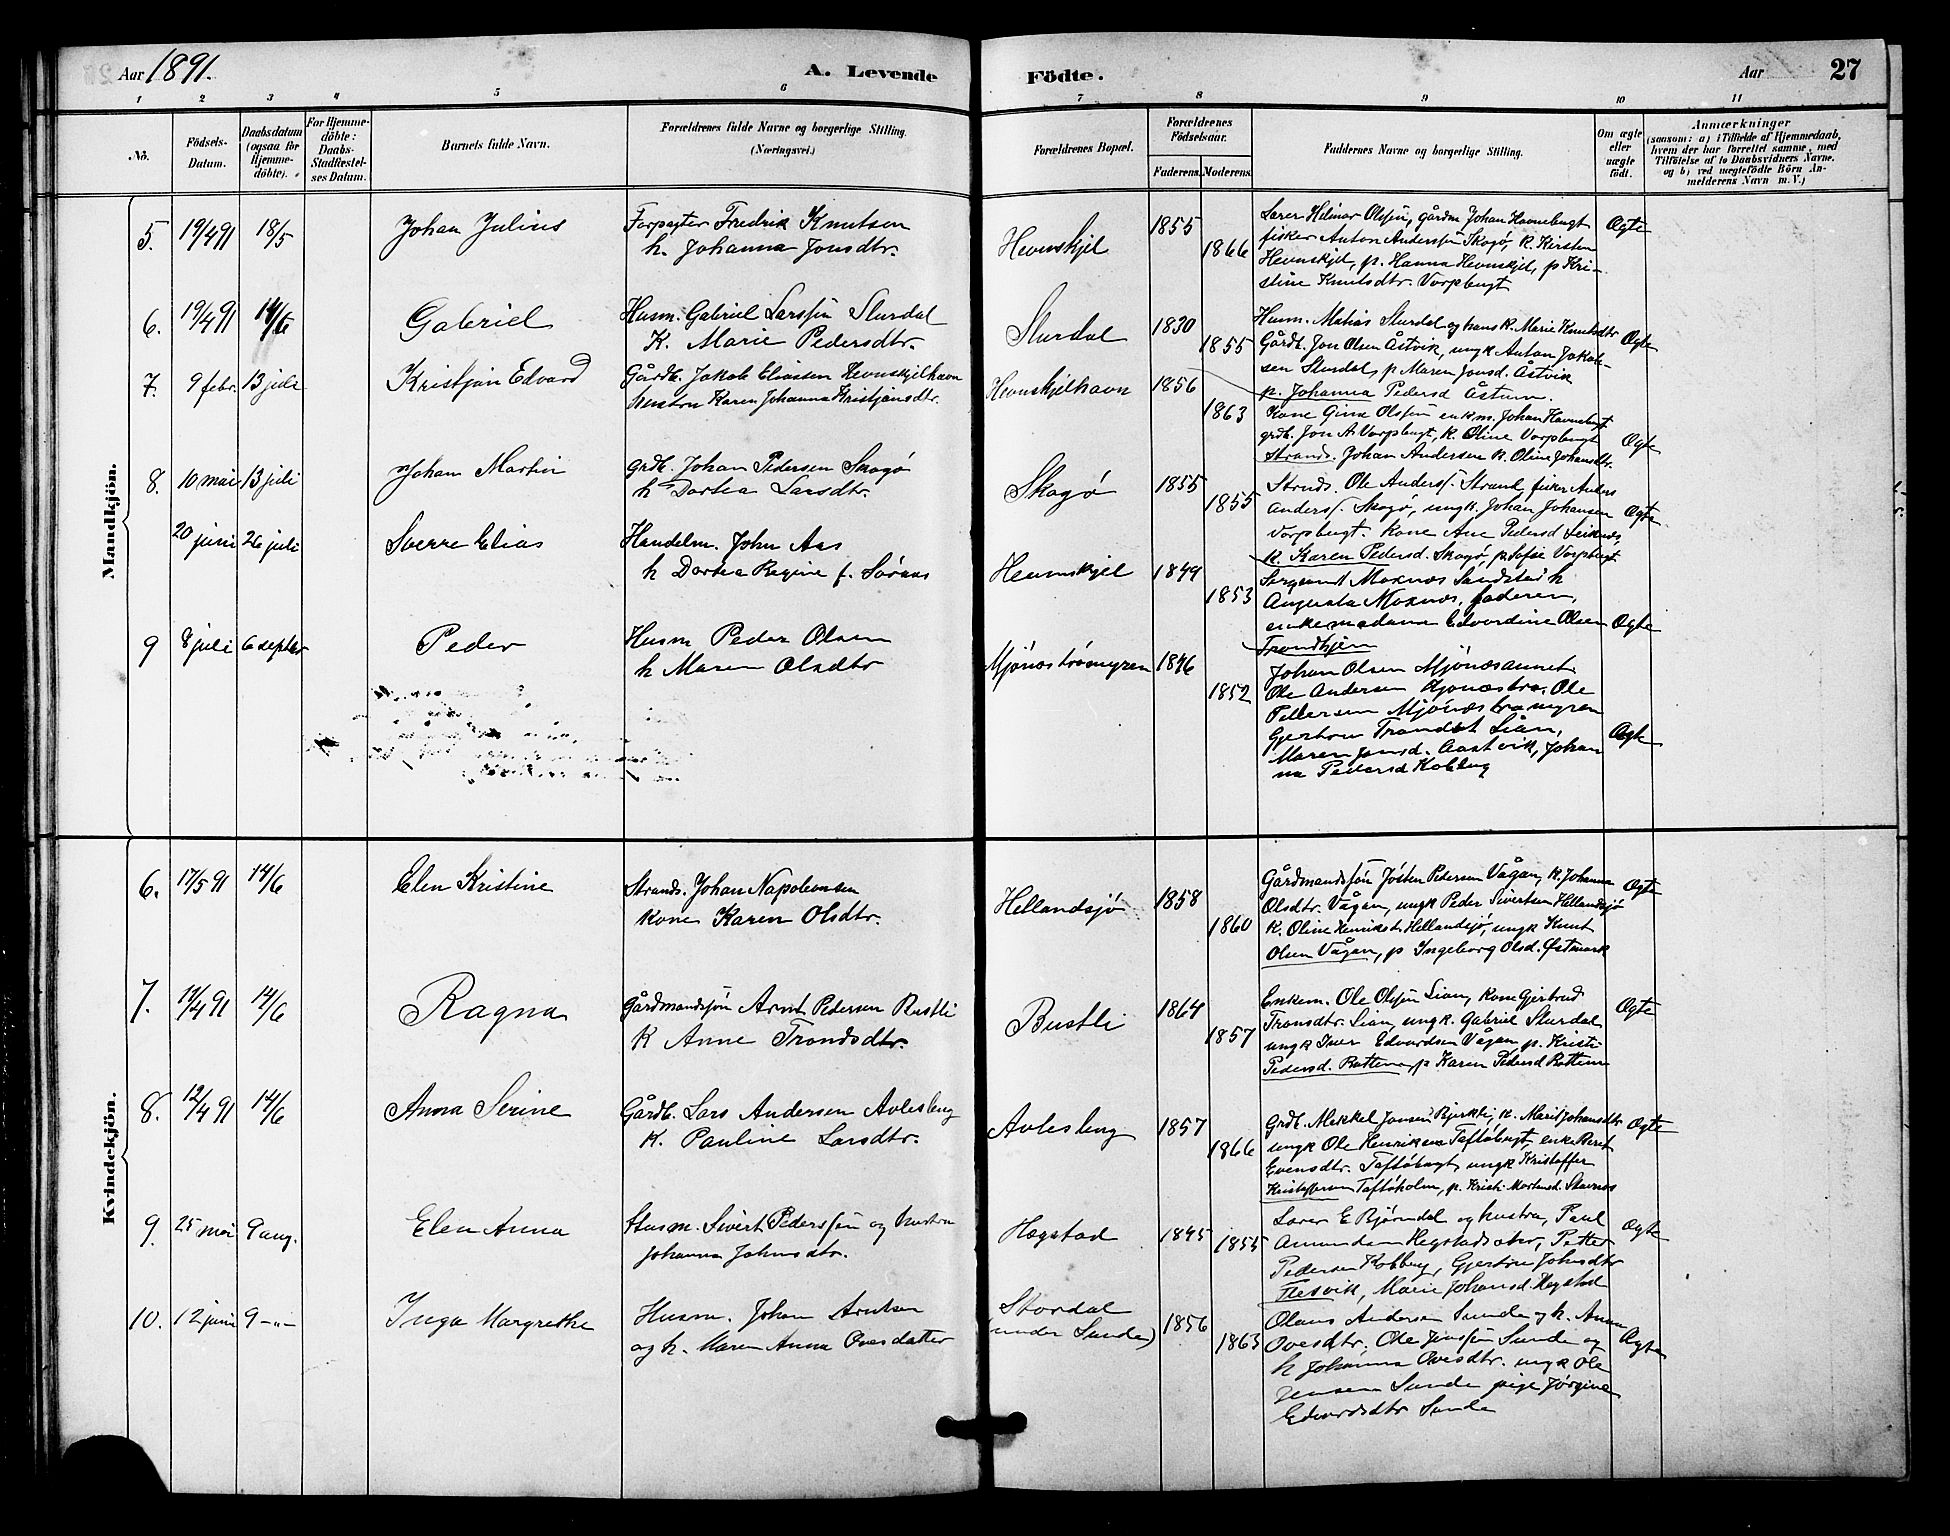 Aar 1891.
A. Levende
Födte.
Aar
27
1 2 3 4 5 6 7 8 9 10 11
No.
Födsels-Datum.
Daabsdatum (ogsaa for Hjemme-döbte).
For Hjemme-döbte: Daabs-Stadfæstel-ses Datum.
Barnets fulde Navn.
Forældrenes fulde Navne og borgerlige Stilling.
(Næringsvei.)
Forældrenes Bopæl.
Forældrenes Födselsaar.
Faderens. Moderens.
Faddernes Navne og borgerlige Stilling.
Om ægte eller uægte födt.
Anmærkninger
(saasom: a) i Tilfælde af Hjemmedaab,
hvem der har forrettet samme, med
Tilföielse af to Daabsvidners Navne.
og b) ved uægtefödte Börn An-
melderens Navn m. V.)
Mandkjön.
5. 19/4 91 18/5 Johan Julius
Forpagter Fredrik Knutsen
h. Johanna Jonsdtr.
Hevnskjel 1855 1866
Lærer Helmer Olsen, gårdm. Johan Havnebugt
fisker Anton Anderssen Skogø, K. Kirsten
Hevnskjel, p. Hanna Hevnskjel, p Kri-
stine Knutsdtr. Vorpbugt
Ægte
6. 19/4 91 14/6 Gabriel
Husm. Gabriel Larssen Slurdal
K. Marie Pedersdtr.
Slurdal 1830 1855
Husm. Matias Slurdal og hans k. Marie Knutsdtr
Gårdb. Jon Olsen Åstvik, ungk. Anton Jakob-
sen Slurdal, p Maren Jonsd. Åstvik
p. Johanna Pedersd Åstum.
Ægte
7. 9 febr. 13 juli Kristjan Edvard
Gårdb. Jakob Eliassen Hevnskjelhavn
Hustru Karen Johanna Kristjansdtr.
Hevnskjelhavn 1856 1863
Kone Gina Olsen enkm. Johan Havnebugt
grdb. Jon A. Vorpbugt, k. Oline Vorpbugt
Strands. Johan Andersen k. Oline Johansdtr.
Ægte
8. 10 mai 13 juli Johan Martin
Grdb. Johan Pedersen Skogø
h Dortea Larsdtr.
Skogø 1855 1855
Strnds. Ole Anders. Strand, fisker Anders
Anders. Skogø, ungk. Johan Johansen
Vorpbugt. Kone Ane Pedersd Leiknes,
k. Karen Pedersd. Skogø, p Sofie Vorpbugt
Ægte
20 juni 26 juli Sverre Elias
Handelm. John Aas
h Dortea Regine f. Sørnæs
Hevnskjel 1849 1853
Sergeant Moxnæs Sandstad h
Augusta Moxnæs, faderen,
enkemadame Edvardine Olsen
Trondhjem
Ægte
9 8 juli 6 septbr Peder
Husm Peder Olsen
h Maren Olsdtr
Mjönæstrømyren 1846 1852
Johan Olsen Mjönæsaunet
Ole Andersen Mjonæstrø. Ole
Pettersen Mjönæstrømyren
Gjertru Trondst Lian,
Maren Jonsd. Aastvik, Johan
na Pedersd Kobberg
Ægte
Kvindekjön.
6. 17/5 91 14/6 Elen Kristine
Strands. Johan Napoleonsen
kone Karen Olsdtr.
Hellandsjø 1858 1860
Gårdmandssøn Jøsten Pedersen Vågan, K. Johanna
Olsdtr. Vågan, ungk Peder Sivertsen Hellandsjø
K. Oline Henriksd. Hellandsjø, ungk Knut
Olsen Vågan, p Ingeborg Olsd. Østmark
Ægte
7. 17/4 91 14/6 Ragna
Gårdmandssøn Arnt Pedersen Bustli
K Anne Trondsdtr.
Bustli 1864 1857
Enkem. Ole Olsen Lian, Kone Gjertrud
Tronsdtr. Lian, ungk. Gabriel Slurdal
ungk Iver Edvardsen Vågan p. Kristi
Pedersd. Rottem p Karen Pedersd Rottem
Ægte
8. 12/4 91 14/6 Anna Serine
Gårdb. Lars Andersen Avlesleng
K. Pauline Larsdtr.
Avlesleng 1857 1866
Grdb. Mekkel Jonsen Bjerkli, k. Marit Johansdtr
ungk Ole Henriksen Taftøbugt, enke Beret
Evensdtr. Taftøbugt, ungk Kristoffer
Kristoffersen Taftøholm, p. Kristi Mortensd. Stamnes
Ægte
9. 25 mai 9 aug. Elen Anna
Husm. Sivert Pederssen og hustru
Johanna Johnsdtr.
Hægstad 1845 1855
Lærer E Bjørndal og hustru, Paul
Amundsen Hegstadsaker, Petter
Pedersen Kobberg, Gjertru Johnsdtr
Flesvik, Marie Johansd. Hegstad
Ægte
10. 12 juni 9 -"- Inga Margrethe
Husm. Johan Arntsen
og h. Maren Anna Ovesdatter
Stordal
(under Sunde) 1856 1863
Olaus Andersen Sunde og h. Anna
Ovesdtr. Ole Jenssen Sunde og
h Johanna Ovesdtr. ungk Ole
Jensen Sunde pige Jørgine
Edvardsdtr Sunde
Ægte